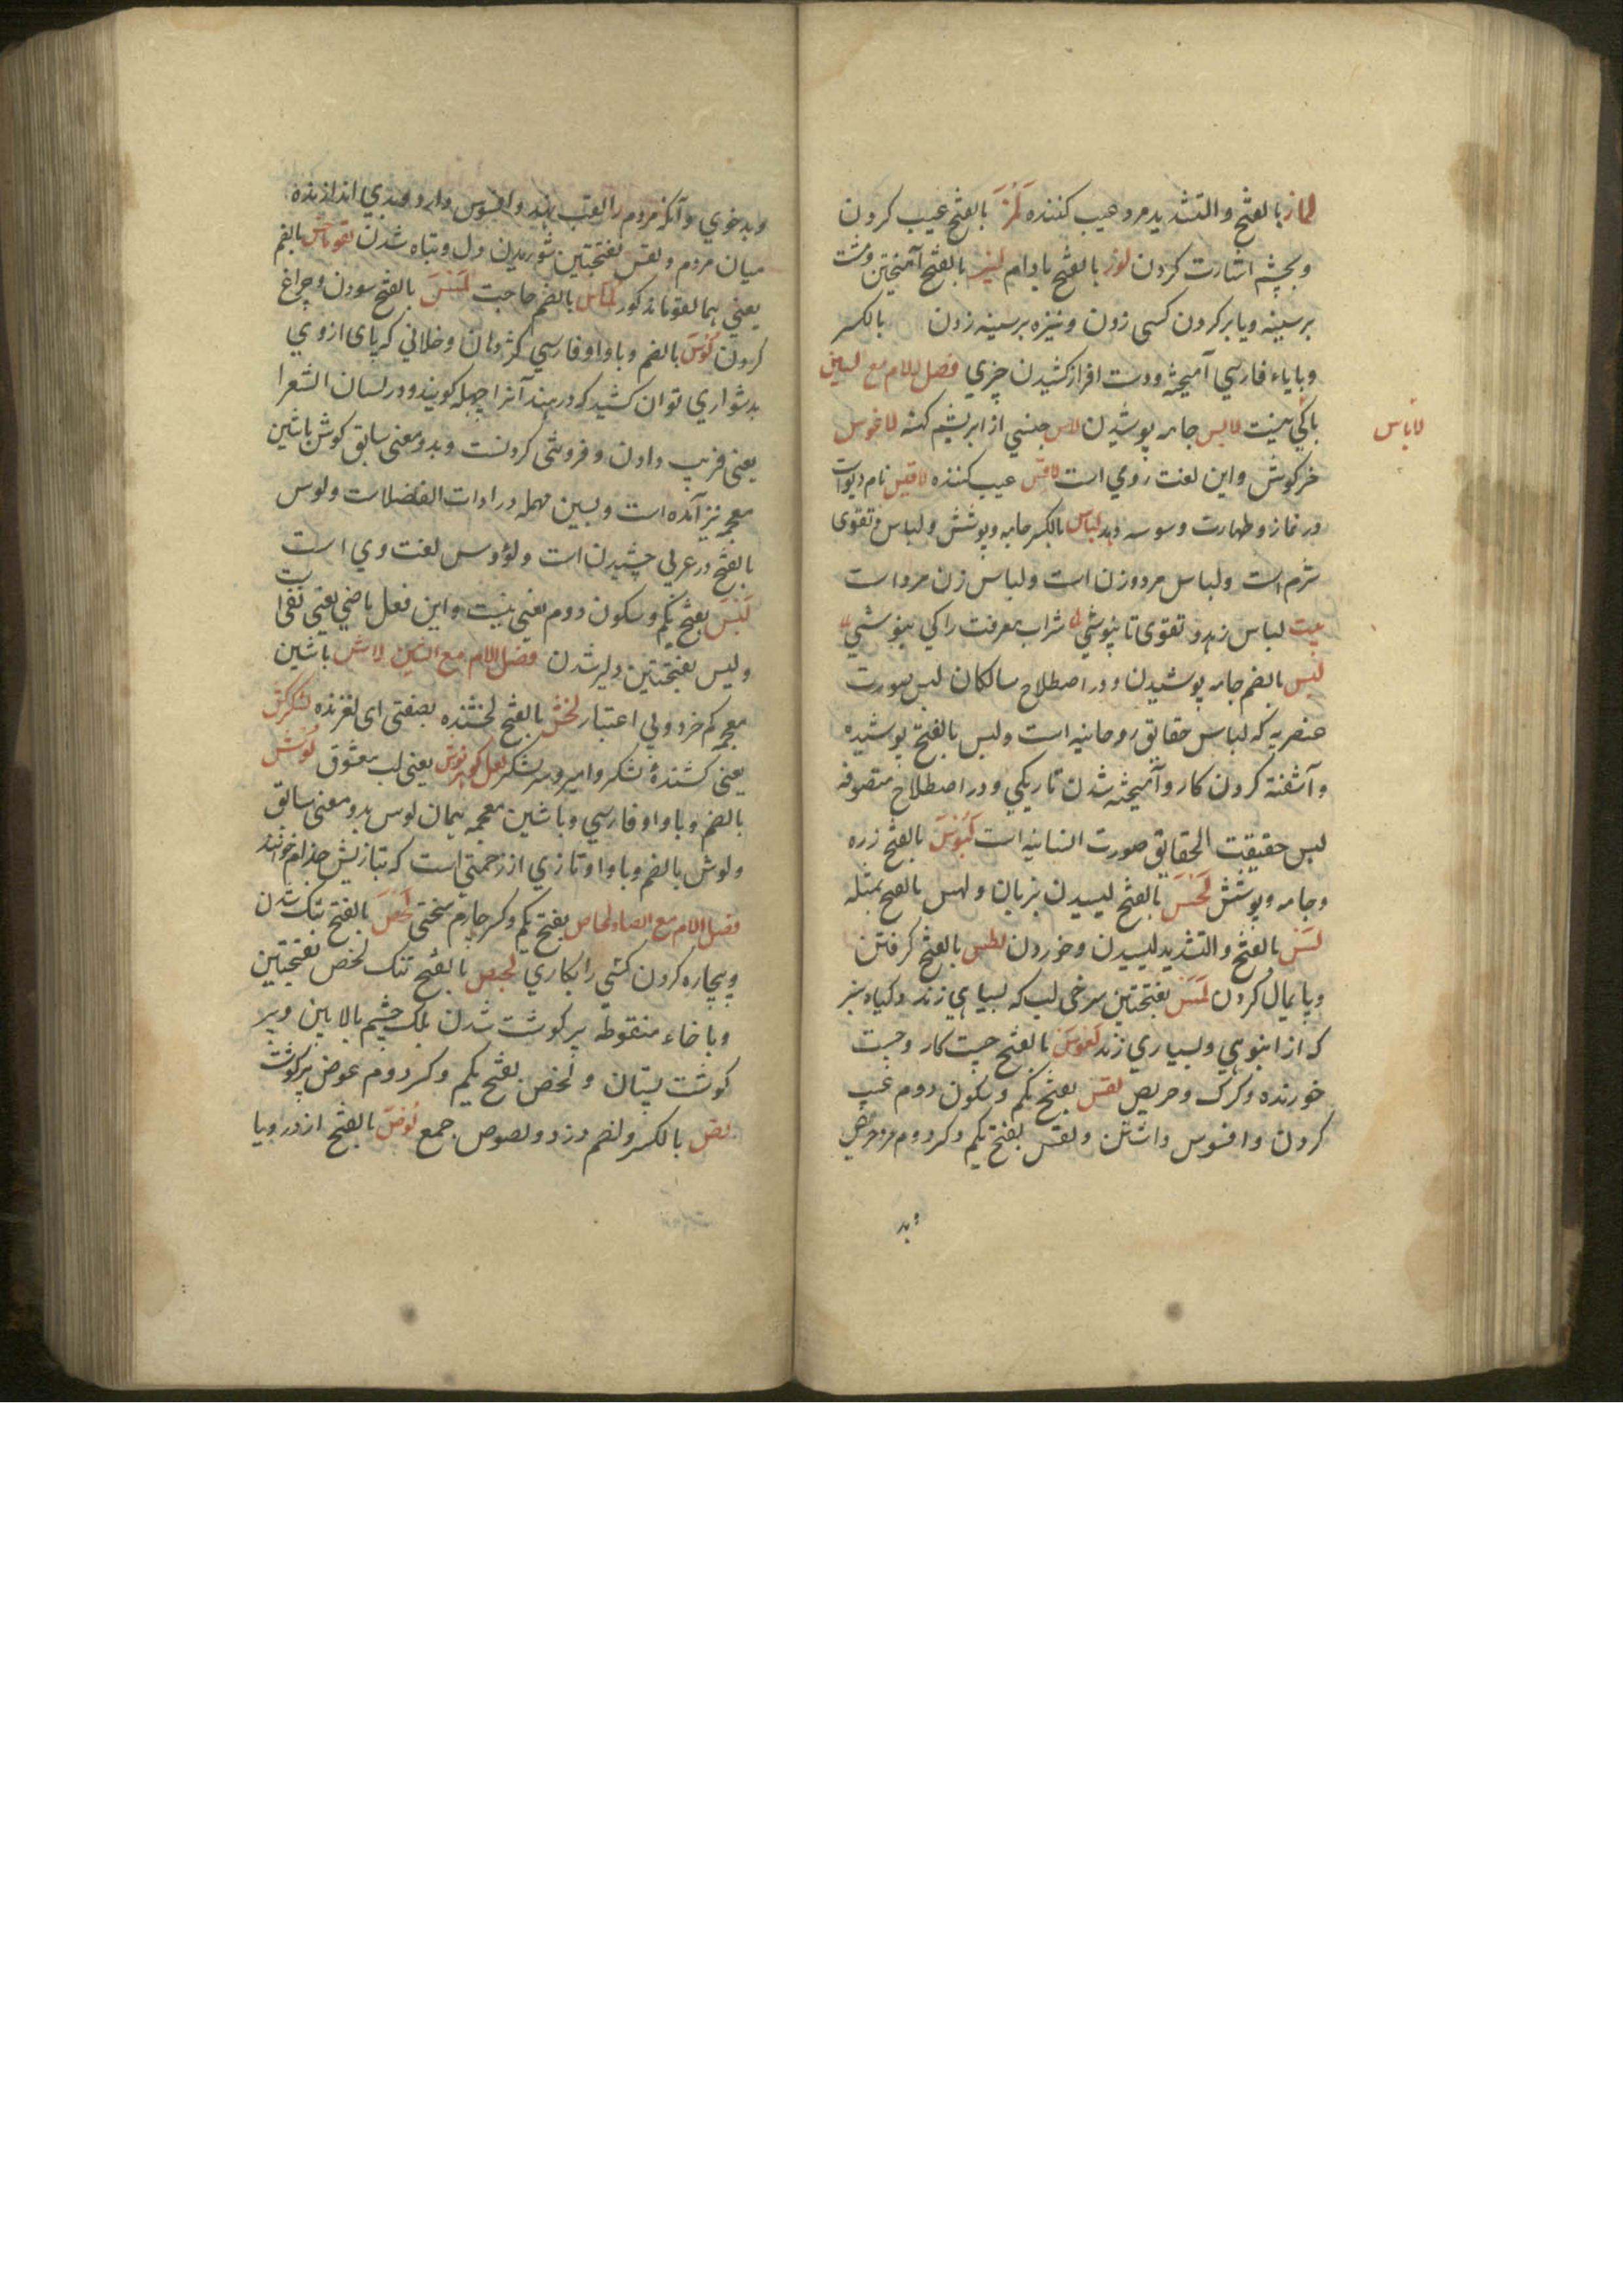 لماز بالفتح والتشدید مرد عیب کننده لمز بالفتح عیب کردن
وبچشم اشارت کردن لوز بالفتح بادام لیز بالفتح آمیختن ومشت
بر سینه ویا بر کردن کسی زدن ونیزه بر سینه زدن بالکسر
وبایاء فارسي آمیخته ودست افراز کشیدن چیزي فصل اللام مع السین
لاباس
باکي نیست لابس جامه پوشیدن لاس جنسي از ابریشم کنه لاغوس
خرکوش واین لغت رومي است لاقس عیب کننده لاقیس نام دیواست
در نماز وطهارت وسوسه دهد لباس بالکسر جامه وپوشش ولباس وتقوی
شرم است ولباس مرد وزن است ولباس زن مرد است
بیت لباس زهد وتقوی تا نپوشي شراب معرفت را کي بنوشي
لبس بالضم جامه پوشیدن ودر اصطلاح سالکان لبس صورت
عنصریه که لباس حقایق روحانیه است ولبس بالفتح پوشیده
وآشفته کردن کار وآمیخته شدن تاریکي ودر اصطلاح متصوفه
لبس حقیقت الحقایق صورت انسانیه است لبوس بالفتح زره
وجامه وپوشش لحس بالفتح لیسیدن بزبان ولهس بالفتح بمثله
لس بالفتح والتشدید لیسیدن وخوردن لطس بالفتح کرفتن
وپایمال کردن لمس بفتحتین سرخی لب که بسیاهي زند وکیاه سبز
که از انبوهي وبسیاري زند لعوس بالفتح چست کار وچست
خورنده وکرک وحریص لقس بفتح یکم وسکون دوم عیب
کردن وافسوس داشتن ولقس بفتح یکم وکسر دوم مرد حریص
وبد
وبد خوي وآنکه مردم را لقب نهد وافسوس دارد وبدي اندازنده
میان مردم ولقس بفتحتین شوریدن دل وتباه شدن لقوماس بالضم
یعني هما لقوما مذکور لماس بالضم حاجت لمس بالفتح سودن وجراغ
کردن لوس بالضم وباواو فارسي کژدمان وخلابي که پای از وي
بدشواري توان کشید که در هند آنرا چهله کویند ودر لسان الشعرا
یعنی فریب دادن وفروتنی کردنست وبدو معنی سابق کوش باشین
معجمه نیز آمده است وبسین مهمله در ادات الفضلاست ولوس
بالفتح در عربي چشیدن است ولؤوس لغت وي است
لیس بفتح یکم وسکون دوم یعنی نیست واین فعل ماضي یعنی نفی است
ولیس بفتحتین دلیر شدن فصل اللام مع الشین لاش باشین
معجمه کم خرد وبي اعتبار لخش بالفتح لخشنده بصفتی ای لغزنده لشکرکش
یعنی کشندهٔ لشکر وامیر وسر لشکر لعل کوهر نوش یعنی لب معشوق لوش
بالضم وباواو فارسي وباشین معجمه همان لوس بدو معنی سابق
ولوش بالضم وباواو تازي از زحمتی است که بتازیش جذام خوانند
فصل اللام مع الصاد لحاص بفتح یکم وکسر چارم سختی لحص بالفتح تنک شدن
وبیچاره کردن کسی را بکاري بالفتح تنک لخص بفتحتین
وباخاء منقوطه پر کوشت شدن پلک چشم بالایین وپر
کوشت پستان ولخص بفتح یکم وکسر دوم عوض پر کوشت
لص بالکسر والضم دزد ولصوص جمع لوص بالفتح از در ویا